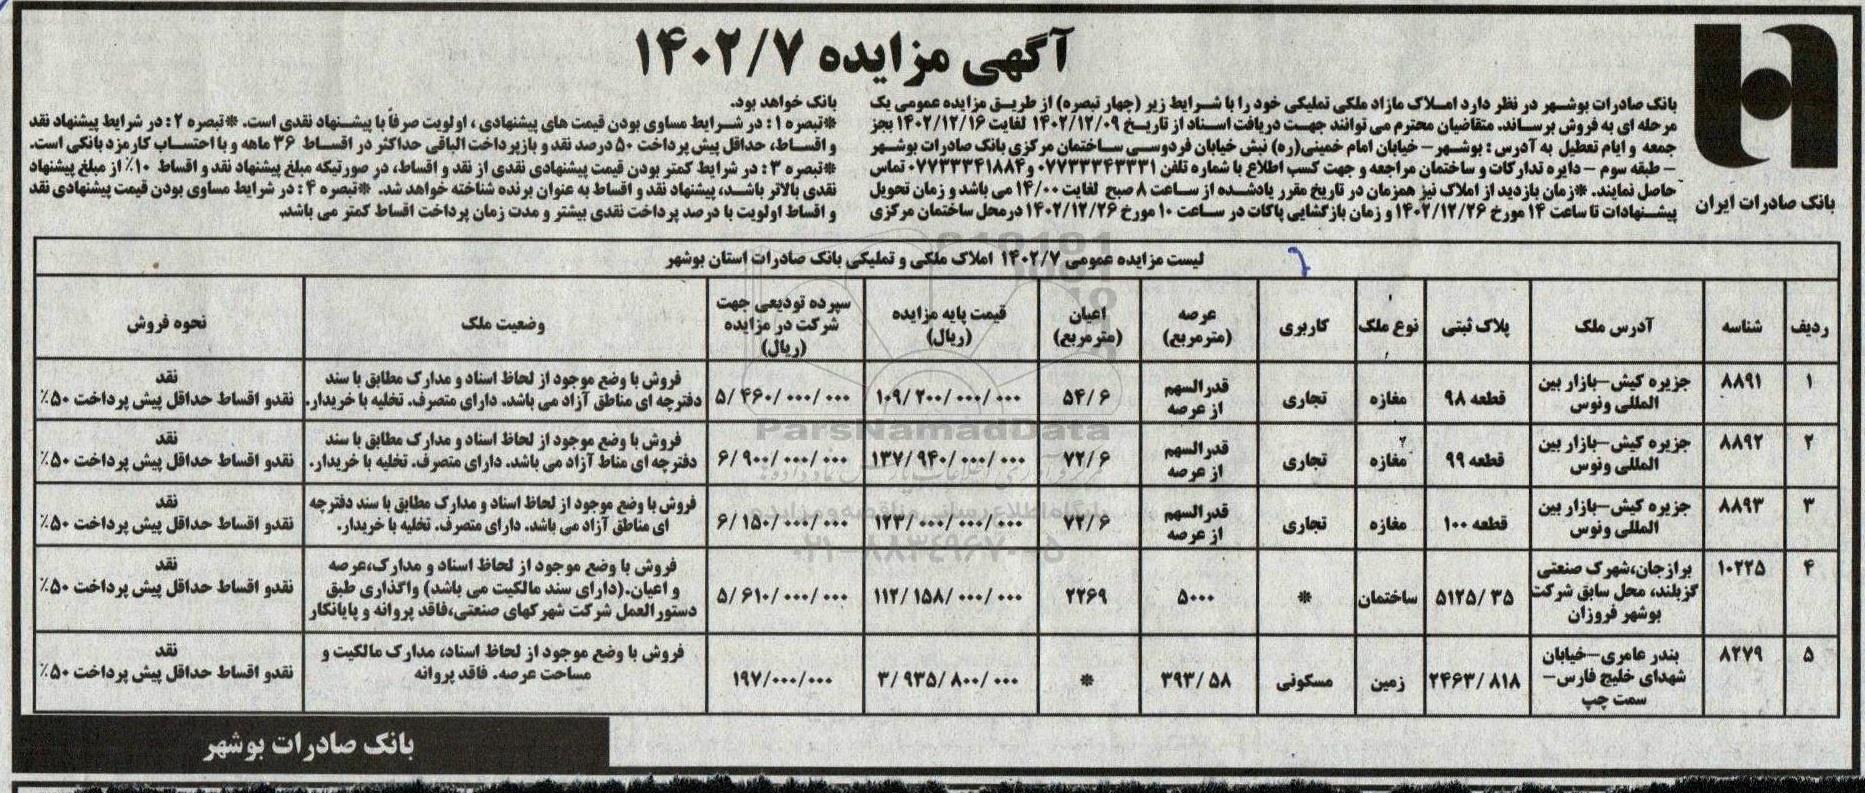 آگهی مزایده ۱۴۰۲/۷
بانک صادرات ایران
بانک صادرات بوشهر در نظر دارد املاک مازاد ملکی تملیکی خود را با شرایط زیر (چهار تبصره) از طریق مزایده عمومی یک
مرحله ای به فروش برساند. متقاضیان محترم می توانند جهت دریافت اسناد از تاریخ ۱۴۰۲/۱۲/۰۹ لغایت ۱۴۰۲/۱۲/۱۶ بجز
جمعه و ایام تعطیل به آدرس : بوشهر – خیابان امام خمینی(ره) نبش خیابان فردوسی ساختمان مرکزی بانک صادرات بوشهر
– طبقه سوم – دایره تدارکات و ساختمان مراجعه و جهت کسب اطلاع با شماره تلفن ۰۷۷۳۳۳۴۳۳۳۱ و ۰۷۷۳۳۳۴۱۸۸۴ تماس
حاصل نمایند. *زمان بازدید از املاک نیز همزمان در تاریخ مقرر یادشده از ساعت ۸ صبح لغایت ۱۴/۰۰ می باشد و زمان تحویل
پیشنهادات تا ساعت ۱۴ مورخ ۱۴۰۲/۱۲/۲۶ و زمان بازگشایی پاکات در ساعت ۱۰ مورخ ۱۴۰۲/۱۲/۲۶ در محل ساختمان مرکزی
بانک خواهد بود.
*تبصره ۱ : در شرایط مساوی بودن قیمت های پیشنهادی ، اولویت صرفاً با پیشنهاد نقدی است. *تبصره ۲ : در شرایط پیشنهاد نقد
و اقساط، حداقل پیش پرداخت ۵۰ درصد نقد و بازپرداخت الباقی حداکثر در اقساط ۳۶ ماهه و با احتساب کارمزد بانکی است.
*تبصره ۳ : در شرایط کمتر بودن قیمت پیشنهادی نقدی از نقد و اقساط، در صورتیکه مبلغ پیشنهاد نقد و اقساط ۱۰٪ از مبلغ پیشنهاد
نقدی بالاتر باشد، پیشنهاد نقد و اقساط به عنوان برنده شناخته خواهد شد. *تبصره ۴ : در شرایط مساوی بودن قیمت پیشنهادی نقد
و اقساط اولویت با درصد پرداخت نقدی بیشتر و مدت زمان پرداخت اقساط کمتر می باشد.
لیست مزایده عمومی ۱۴۰۲/۷ املاک ملکی و تملیکی بانک صادرات استان بوشهر
ردیف شناسه آدرس ملک پلاک ثبتی نوع ملک کاربری عرصه (مترمربع) اعیان (مترمربع) قیمت پایه مزایده (ریال) سپرده تودیعی جهت شرکت در مزایده (ریال) وضعیت ملک نحوه فروش
۱ ۸۸۹۱ جزیره کیش–بازار بین المللی ونوس قطعه ۹۸ مغازه تجاری قدرالسهم از عرصه ۵۴/۶ ۱۰۹/۲۰۰/۰۰۰/۰۰۰ ۵/۴۶۰/۰۰۰/۰۰۰ فروش با وضع موجود از لحاظ اسناد و مدارک مطابق با سند دفترچه ای مناطق آزاد می باشد. دارای متصرف. تخلیه با خریدار. نقد نقدو اقساط حداقل پیش پرداخت ۵۰٪
۲ ۸۸۹۲ جزیره کیش–بازار بین المللی ونوس قطعه ۹۹ مغازه تجاری قدرالسهم از عرصه ۷۲/۶ ۱۳۷/۹۴۰/۰۰۰/۰۰۰ ۶/۹۰۰/۰۰۰/۰۰۰ فروش با وضع موجود از لحاظ اسناد و مدارک مطابق با سند دفترچه ای مناط آزاد می باشد. دارای متصرف. تخلیه با خریدار. نقد نقدو اقساط حداقل پیش پرداخت ۵۰٪
۳ ۸۸۹۳ جزیره کیش–بازار بین المللی ونوس قطعه ۱۰۰ مغازه تجاری قدرالسهم از عرصه ۷۲/۶ ۱۲۳/۰۰۰/۰۰۰/۰۰۰ ۶/۱۵۰/۰۰۰/۰۰۰ فروش با وضع موجود از لحاظ اسناد و مدارک مطابق با سند دفترچه ای مناطق آزاد می باشد. دارای متصرف. تخلیه با خریدار. نقد نقدو اقساط حداقل پیش پرداخت ۵۰٪
۴ ۱۰۲۲۵ برازجان،شهرک صنعتی گزبلند، محل سابق شرکت بوشهر فروزان ۵۱۲۵/۳۵ ساختمان * ۵۰۰۰ ۲۲۶۹ ۱۱۲/۱۵۸/۰۰۰/۰۰۰ ۵/۶۱۰/۰۰۰/۰۰۰ فروش با وضع موجود از لحاظ اسناد و مدارک،عرصه و اعیان.(دارای سند مالکیت می باشد) واگذاری طبق دستورالعمل شرکت شهرکهای صنعتی،فاقد پروانه و پایانکار نقد نقدو اقساط حداقل پیش پرداخت ۵۰٪
۵ ۸۲۷۹ بندر عامری–خیابان شهدای خلیج فارس– سمت چپ ۲۴۶۳/۸۱۸ زمین مسکونی ۳۹۳/۵۸ * ۳/۹۳۵/۸۰۰/۰۰۰ ۱۹۷/۰۰۰/۰۰۰ فروش با وضع موجود از لحاظ اسناد، مدارک مالکیت و مساحت عرصه. فاقد پروانه نقد نقدو اقساط حداقل پیش پرداخت ۵۰٪
بانک صادرات بوشهر
ParsNamadData
۰۲۱-۸۸۳۴۹۶۷۰-۵